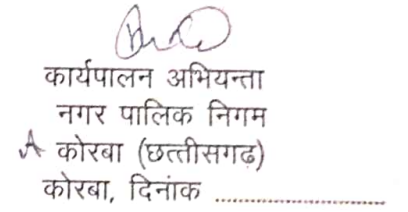 कार्यपालन अभियन्ता
नगर पालिक निगम
कोरबा (छत्तीसगढ़)
कोरबा, दिनांक ........................